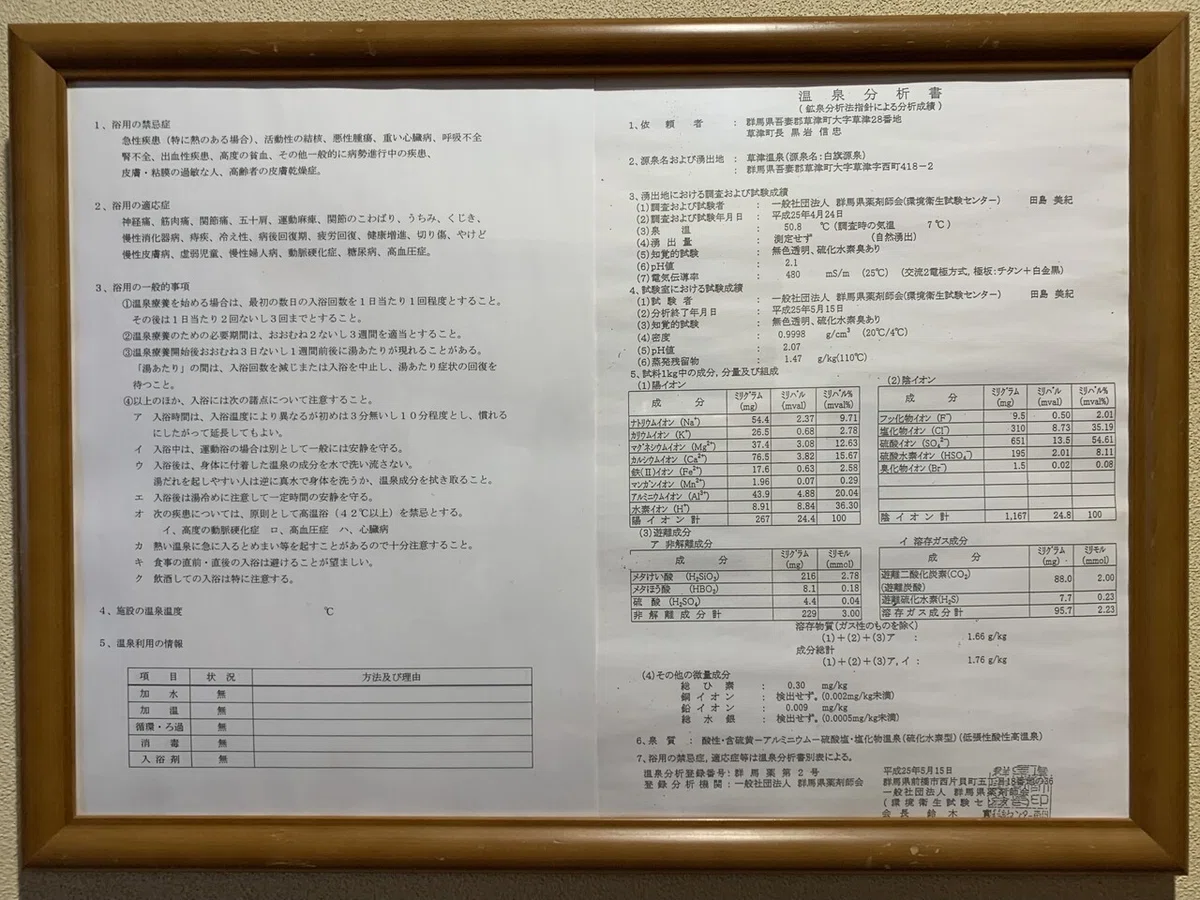 1、浴用の禁忌症
急性疾患（特に熱のある場合）、活動性の結核、悪性腫瘍、重い心臓病、呼吸不全
腎不全、出血性疾患、高度の貧血、その他一般的に病勢進行中の疾患、
皮膚・粘膜の過敏な人、高齢者の皮膚乾燥症。
2、浴用の適応症
神経痛、筋肉痛、関節痛、五十肩、運動麻痺、関節のこわばり、うちみ、くじき、
慢性消化器病、痔疾、冷え性、病後回復期、疲労回復、健康増進、切り傷、やけど
慢性皮膚病、虚弱児童、慢性婦人病、動脈硬化症、糖尿病、高血圧症。
3、浴用の一般的事項
①温泉療養を始める場合は、最初の数日の入浴回数を１日当たり１回程度とすること。
その後は１日当たり２回ないし３回までとすること。
②温泉療養のための必要期間は、おおむね２ないし３週間を適当とすること。
③温泉療養開始後おおむね３日ないし１週間前後に湯あたりが現れることがある。
「湯あたり」の間は、入浴回数を減じまたは入浴を中止し、湯あたり症状の回復を
待つこと。
④以上のほか、入浴には次の諸点について注意すること。
ア 入浴時間は、入浴温度により異なるが初めは３分無いし１０分程度とし、慣れる
にしたがって延長してもよい。
イ 入浴中は、運動浴の場合は別として一般には安静を守る。
ウ 入浴後は、身体に付着した温泉の成分を水で洗い流さない。
湯だれを起しやすい人は逆に真水で身体を洗うか、温泉成分を拭き取ること。
エ 入浴後は湯冷めに注意して一定時間の安静を守る。
オ 次の疾患については、原則として高温浴（４２℃以上）を禁忌とする。
イ、高度の動脈硬化症 ロ、高血圧症 ハ、心臓病
カ 熱い温泉に急に入るとめまい等を起すことがあるので十分注意すること。
キ 食事の直前・直後の入浴は避けることが望ましい。
ク 飲酒しての入浴は特に注意する。
4、施設の温泉温度 ℃
5、温泉利用の情報
項 目 状 況 方法及び理由
加 水 無
加 温 無
循環・ろ過 無
消 毒 無
入 浴 剤 無
温 泉 分 析 書
(鉱泉分析法指針による分析成績)
1、依 頼 者 : 群馬県吾妻郡草津町大字草津28番地
草津町長 黒岩 信忠
2、源泉名および湧出地 : 草津温泉(源泉名:白旗源泉)
: 群馬県吾妻郡草津町大字草津字西町418－2
3、湧出地における調査および試験成績
(1)調査および試験者 : 一般社団法人 群馬県薬剤師会(環境衛生試験センター) 田島 美紀
(2)調査および試験年月日 : 平成25年4月24日
(3)泉 温 : 50.8 ℃ (調査時の気温 7℃)
(4)湧 出 量 : 測定せず (自然湧出)
(5)知覚的試験 : 無色透明、硫化水素臭あり
(6)pH値 : 2.1
(7)電気伝導率 : 480 mS/m (25℃) (交流2電極方式, 極板:チタン+白金黒)
4、試験室における試験成績
(1)試 験 者 : 一般社団法人 群馬県薬剤師会(環境衛生試験センター) 田島 美紀
(2)分析終了年月日 : 平成25年5月15日
(3)知覚的試験 : 無色透明、硫化水素臭あり
(4)密度 : 0.9998 g/cm³ (20℃/4℃)
(5)pH値 : 2.07
(6)蒸発残留物 : 1.47 g/kg(110℃)
5、試料1kg中の成分, 分量及び組成
(1)陽イオン
成 分 ミリグラム(mg) ミリバル(mval) ミリバル%(mval%)
ナトリウムイオン (Na⁺) 54.4 2.37 9.71
カリウムイオン (K⁺) 26.5 0.68 2.78
マグネシウムイオン (Mg²⁺) 37.4 3.08 12.63
カルシウムイオン (Ca²⁺) 76.5 3.82 15.67
鉄(Ⅱ)イオン (Fe²⁺) 17.6 0.63 2.58
マンガンイオン (Mn²⁺) 1.96 0.07 0.29
アルミニウムイオン (Al³⁺) 43.9 4.88 20.04
水素イオン (H⁺) 8.91 8.84 36.30
陽 イ オ ン 計 267 24.4 100
(2)陰イオン
成 分 ミリグラム(mg) ミリバル(mval) ミリバル%(mval%)
フッ化物イオン (F⁻) 9.5 0.50 2.01
塩化物イオン (Cl⁻) 310 8.73 35.19
硫酸イオン (SO₄²⁻) 651 13.5 54.61
硫酸水素イオン (HSO₄⁻) 195 2.01 8.11
臭化物イオン (Br⁻) 1.5 0.02 0.08
陰 イ オ ン 計 1,167 24.8 100
(3)遊離成分
ア 非解離成分
成 分 ミリグラム(mg) ミリモル(mmol)
メタけい酸 (H₂SiO₃) 216 2.78
メタほう酸 (HBO₂) 8.1 0.18
硫 酸 (H₂SO₄) 4.4 0.04
非 解 離 成 分 計 229 3.00
イ 溶存ガス成分
成 分 ミリグラム(mg) ミリモル(mmol)
遊離二酸化炭素(CO₂)
(遊離炭酸) 88.0 2.00
遊離硫化水素(H₂S) 7.7 0.23
溶 存 ガ ス 成 分 計 95.7 2.23
溶存物質(ガス性のものを除く)
(1)+(2)+(3)ア : 1.66 g/kg
成分総計
(1)+(2)+(3)ア, イ : 1.76 g/kg
(4)その他の微量成分
総 ひ 素 : 0.30 mg/kg
銅 イ オ ン : 検出せず。(0.002mg/kg未満)
鉛 イ オ ン : 0.009 mg/kg
総 水 銀 : 検出せず。(0.0005mg/kg未満)
6、泉 質 : 酸性・含硫黄－アルミニウム－硫酸塩・塩化物温泉(硫化水素型)(低張性酸性高温泉)
7、浴用の禁忌症, 適応症等は温泉分析書別表による。
温泉分析登録番号: 群 馬 薬 第 2 号
登 録 分 析 機 関 : 一般社団法人 群馬県薬剤師会
平成25年5月15日
群馬県前橋市西片貝町五丁目18番地の36
一般社団法人 群馬県薬剤師会
(環境衛生試験セ
会 長 鈴 木